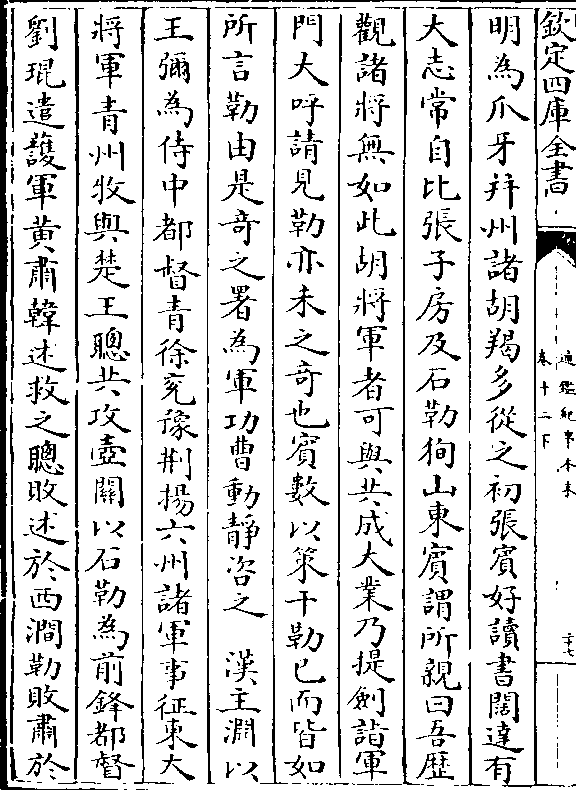 欽定四庫全書
通鑑紀事本末
卷十二下
二十七
明為爪牙并州諸胡羯多從之初張賓好讀書闊達有
大志常自比張子房及石勒狥山東賓謂所親曰吾歴
觀諸將無如此胡將軍者可與共成大業乃提劍詣軍
門大呼請見勒亦未之竒也賓數以策干勒已而皆如
所言勒由是竒之署為軍功曹動靜咨之　漢主淵以
王彌為侍中都督青徐兗豫荆揚六州諸軍事征東大
將軍青州牧與楚王聰共攻壺關以石勒為前鋒都督
劉琨遣護軍黄肅韓述救之聰敗述於西澗勒敗肅於